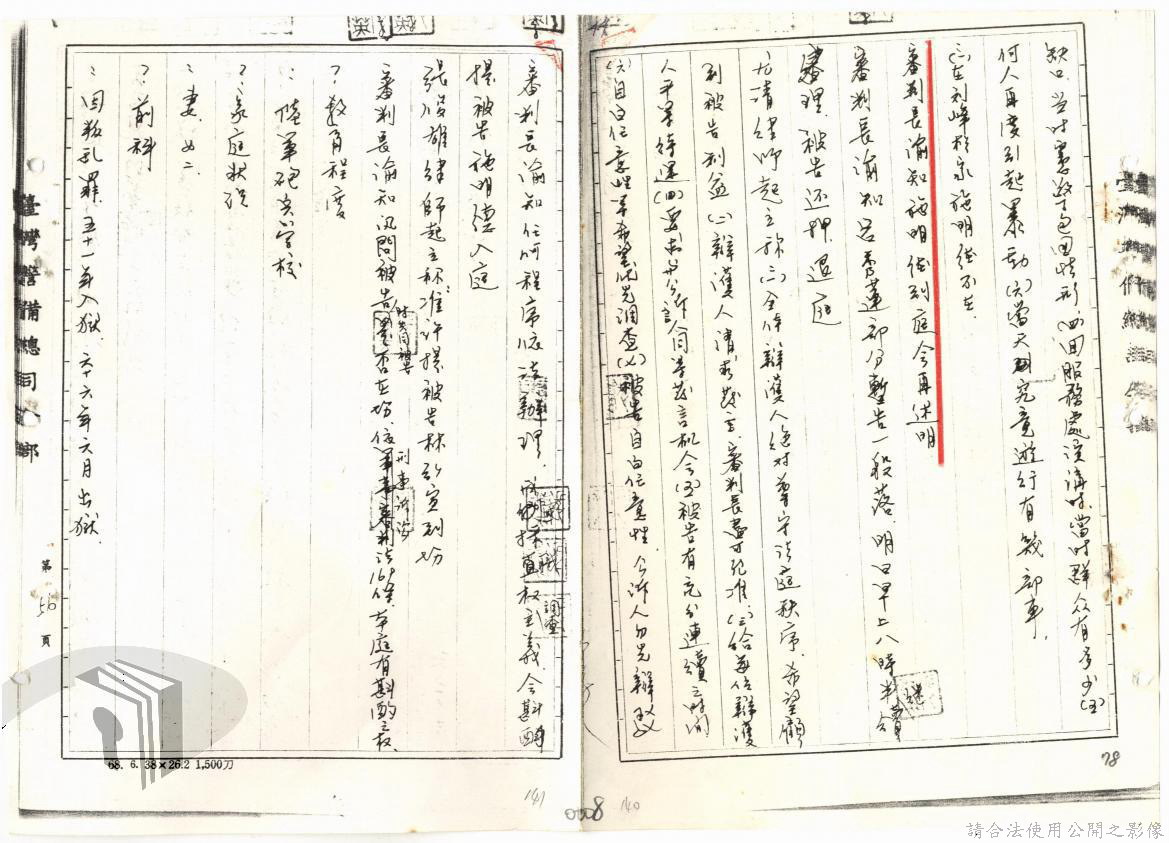 缺口,當時憲警包圍情形,(四)回服務處演講時,當時群眾有多少(五)
何人再度引起暴動(六)當天到究竟遊行有幾部車,
(二)在劉峰松家施明德不在
審判長諭知施明德到庭令再休明
審判長諭知呂秀蓮部份暫告一段落,明日早上八時半續
審理,被告還押,退庭
律師起立稱(一)全體辯護人絕對尊守法庭秩序,希望顧
到被告利益(二)辯護人請求發言,審判長盡可能准(三)給每位辯護
人平等待遇(四)要求與公訴人同等發言機會(五)被告有充分連續之時間
(六)自白任意性等希望能先調查(七)被告自白任意性,公訴人勿先辯
審判長諭知任何程序依法辦理,調查職權主義,令
提被告施明德入庭
張俊雄律師起立稱:准許提被告林弘宣到場
審判長諭知訊問被告是否在場,依刑事訴訟法169條,本庭有斟酌之權,
?教育程度
:陸軍砲兵學校
?家庭狀況
:妻,女二
?前科
:因叛亂罪,五十一年入獄,六十六年六月出獄,
臺灣警備總司令部
第56頁
68. 6. 38×26.2 1,500刀
78
141
140
0008
請合法使用公開之影像